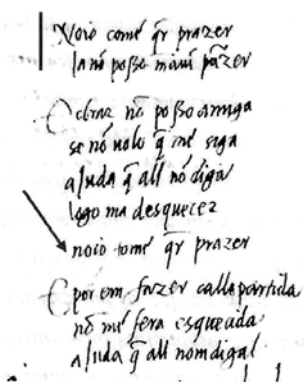 Noio come q̃r prazer
la nõ posso mã uĩ pãzer
E cobrar nõ posso amiga
se nõ uolo q̃ me sega
aJuda q̃ all nõ diga
logo ma desquecer
noio come q̃r prazer
E por em fazer calla partida
nõ me sera esqueeida
aJuda q̃ all nom diga